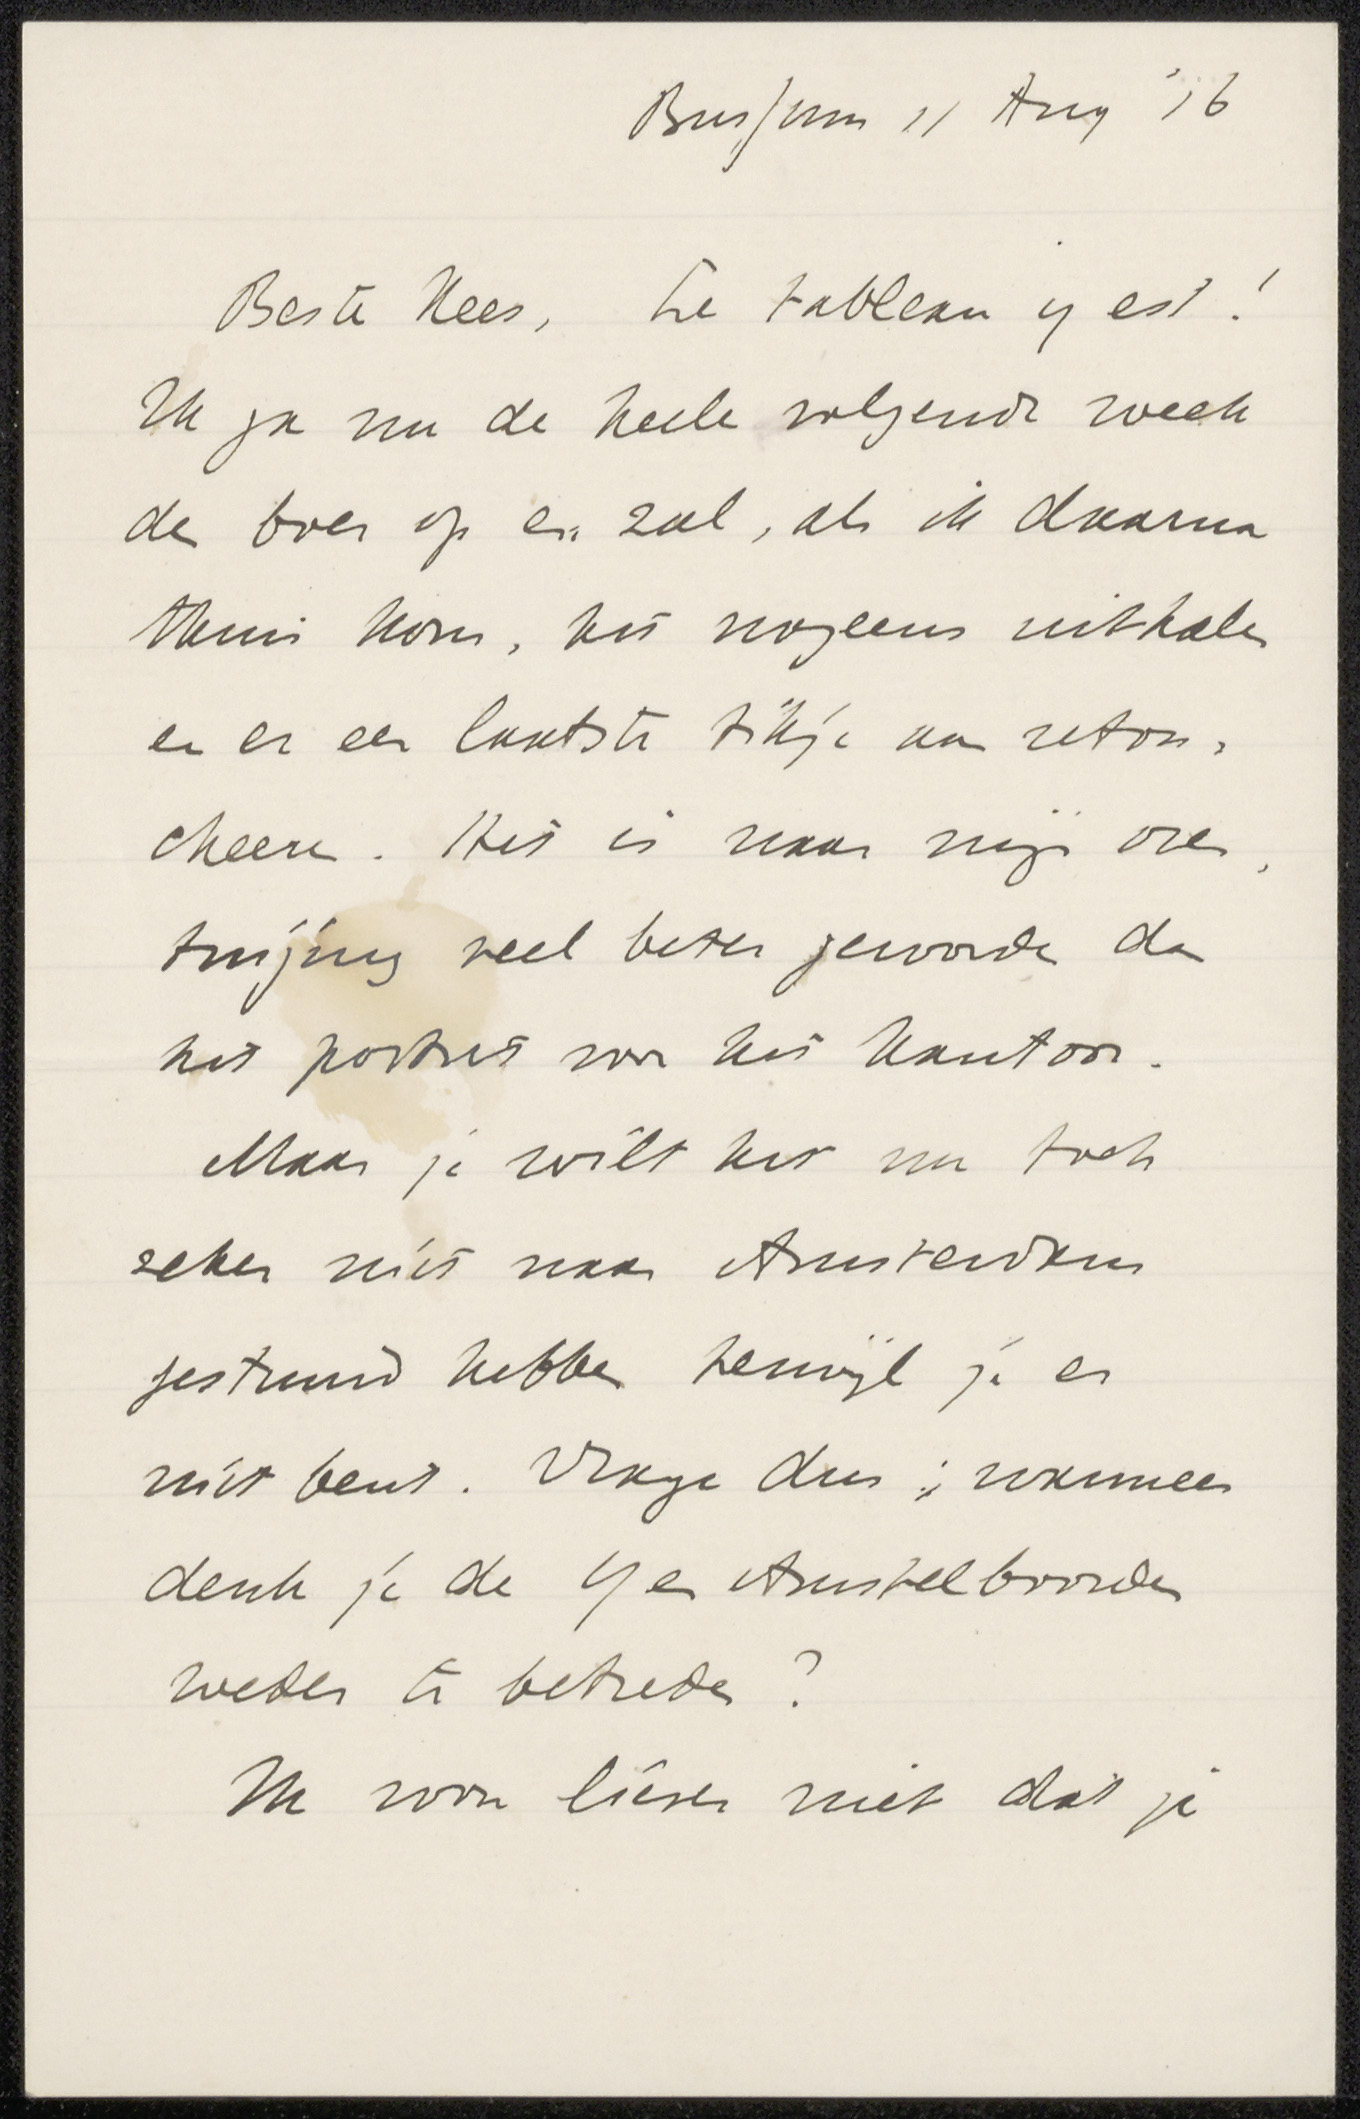 Bussum 11 Aug '16
Beste Kees, Le tableau y est!
Ik ga nu de heele volgende week
de boer op en zal, als ik daarna
thuis kom, het nogeens uithalen
en er een laatste tikje aan retou-
cheeren. Het is naar mijn over-
tuiging veel beter geworden dan
het portret voor het kantoor.
Maar je wilt het nu toch
zeker niet naar Amsterdam
gestuurd hebben terwijl je er
niet bent. Vrage dus: wanneer
denk je de Y en Amstelboorden
weder te betreden?
Ik wou liever niet dat je